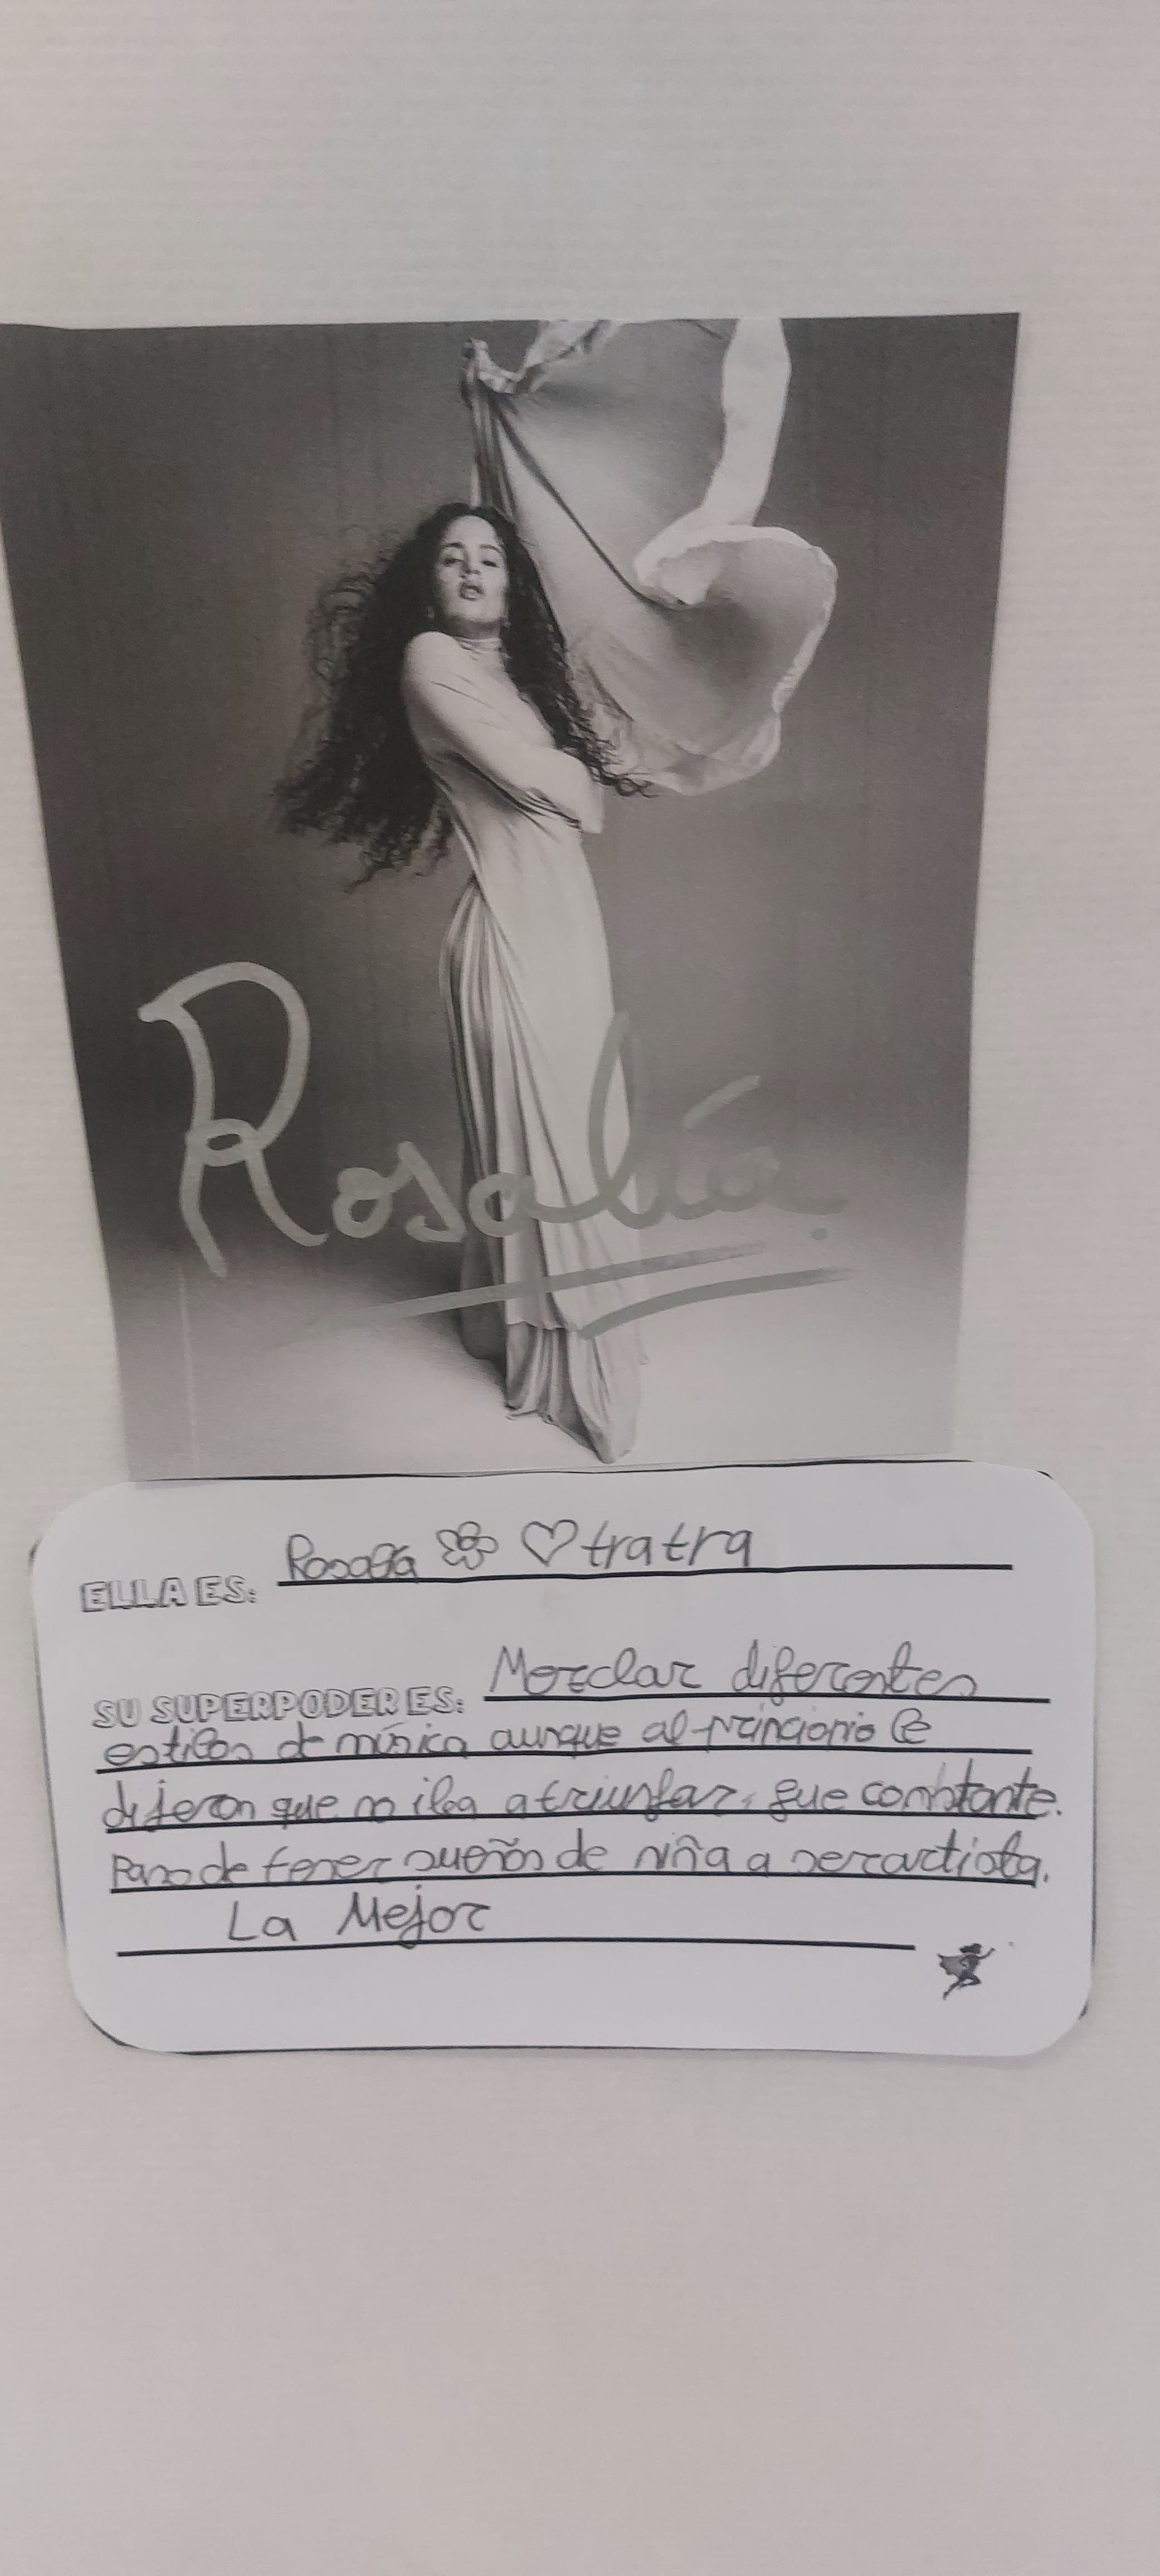 Rosalía.
ELLA ES: Rosalía tratra
SU SUPERPODER ES: Mezclar diferentes
estilos de música aunque al principio le
dijeron que no iba a triunfar, fue constante.
Paso de tener sueños de niña a ser artista.
La Mejor